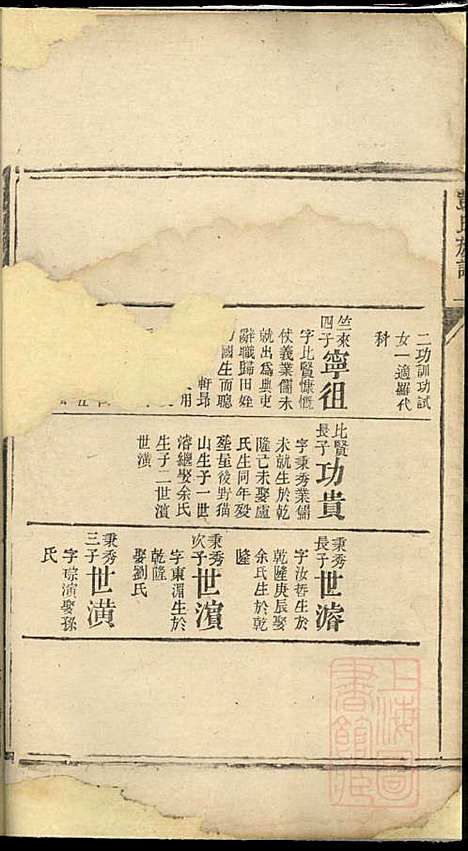 二功訓功試
女一適羅代
科
竺來
四子
寧徂
字比賢慷慨
仗義業儒未
就出為典吏
辭職歸田姪
國生而聰
軒昂
用
比賢
長子
功貴
字秉秀業儒
未就生於乾
隆己未娶盧
氏生同年歿
塟屋後野猫
山生子一世
濬繼娶余氏
生子二世濵
世潢
秉秀
長子
世濬
字汝哲生於
乾隆庚辰娶
余氏生於乾
隆
秉秀
次子
世濵
字東湄生於
乾隆
娶劉氏
秉秀
三子
世潢
字琮演娶孫
氏
上海圖
書館藏